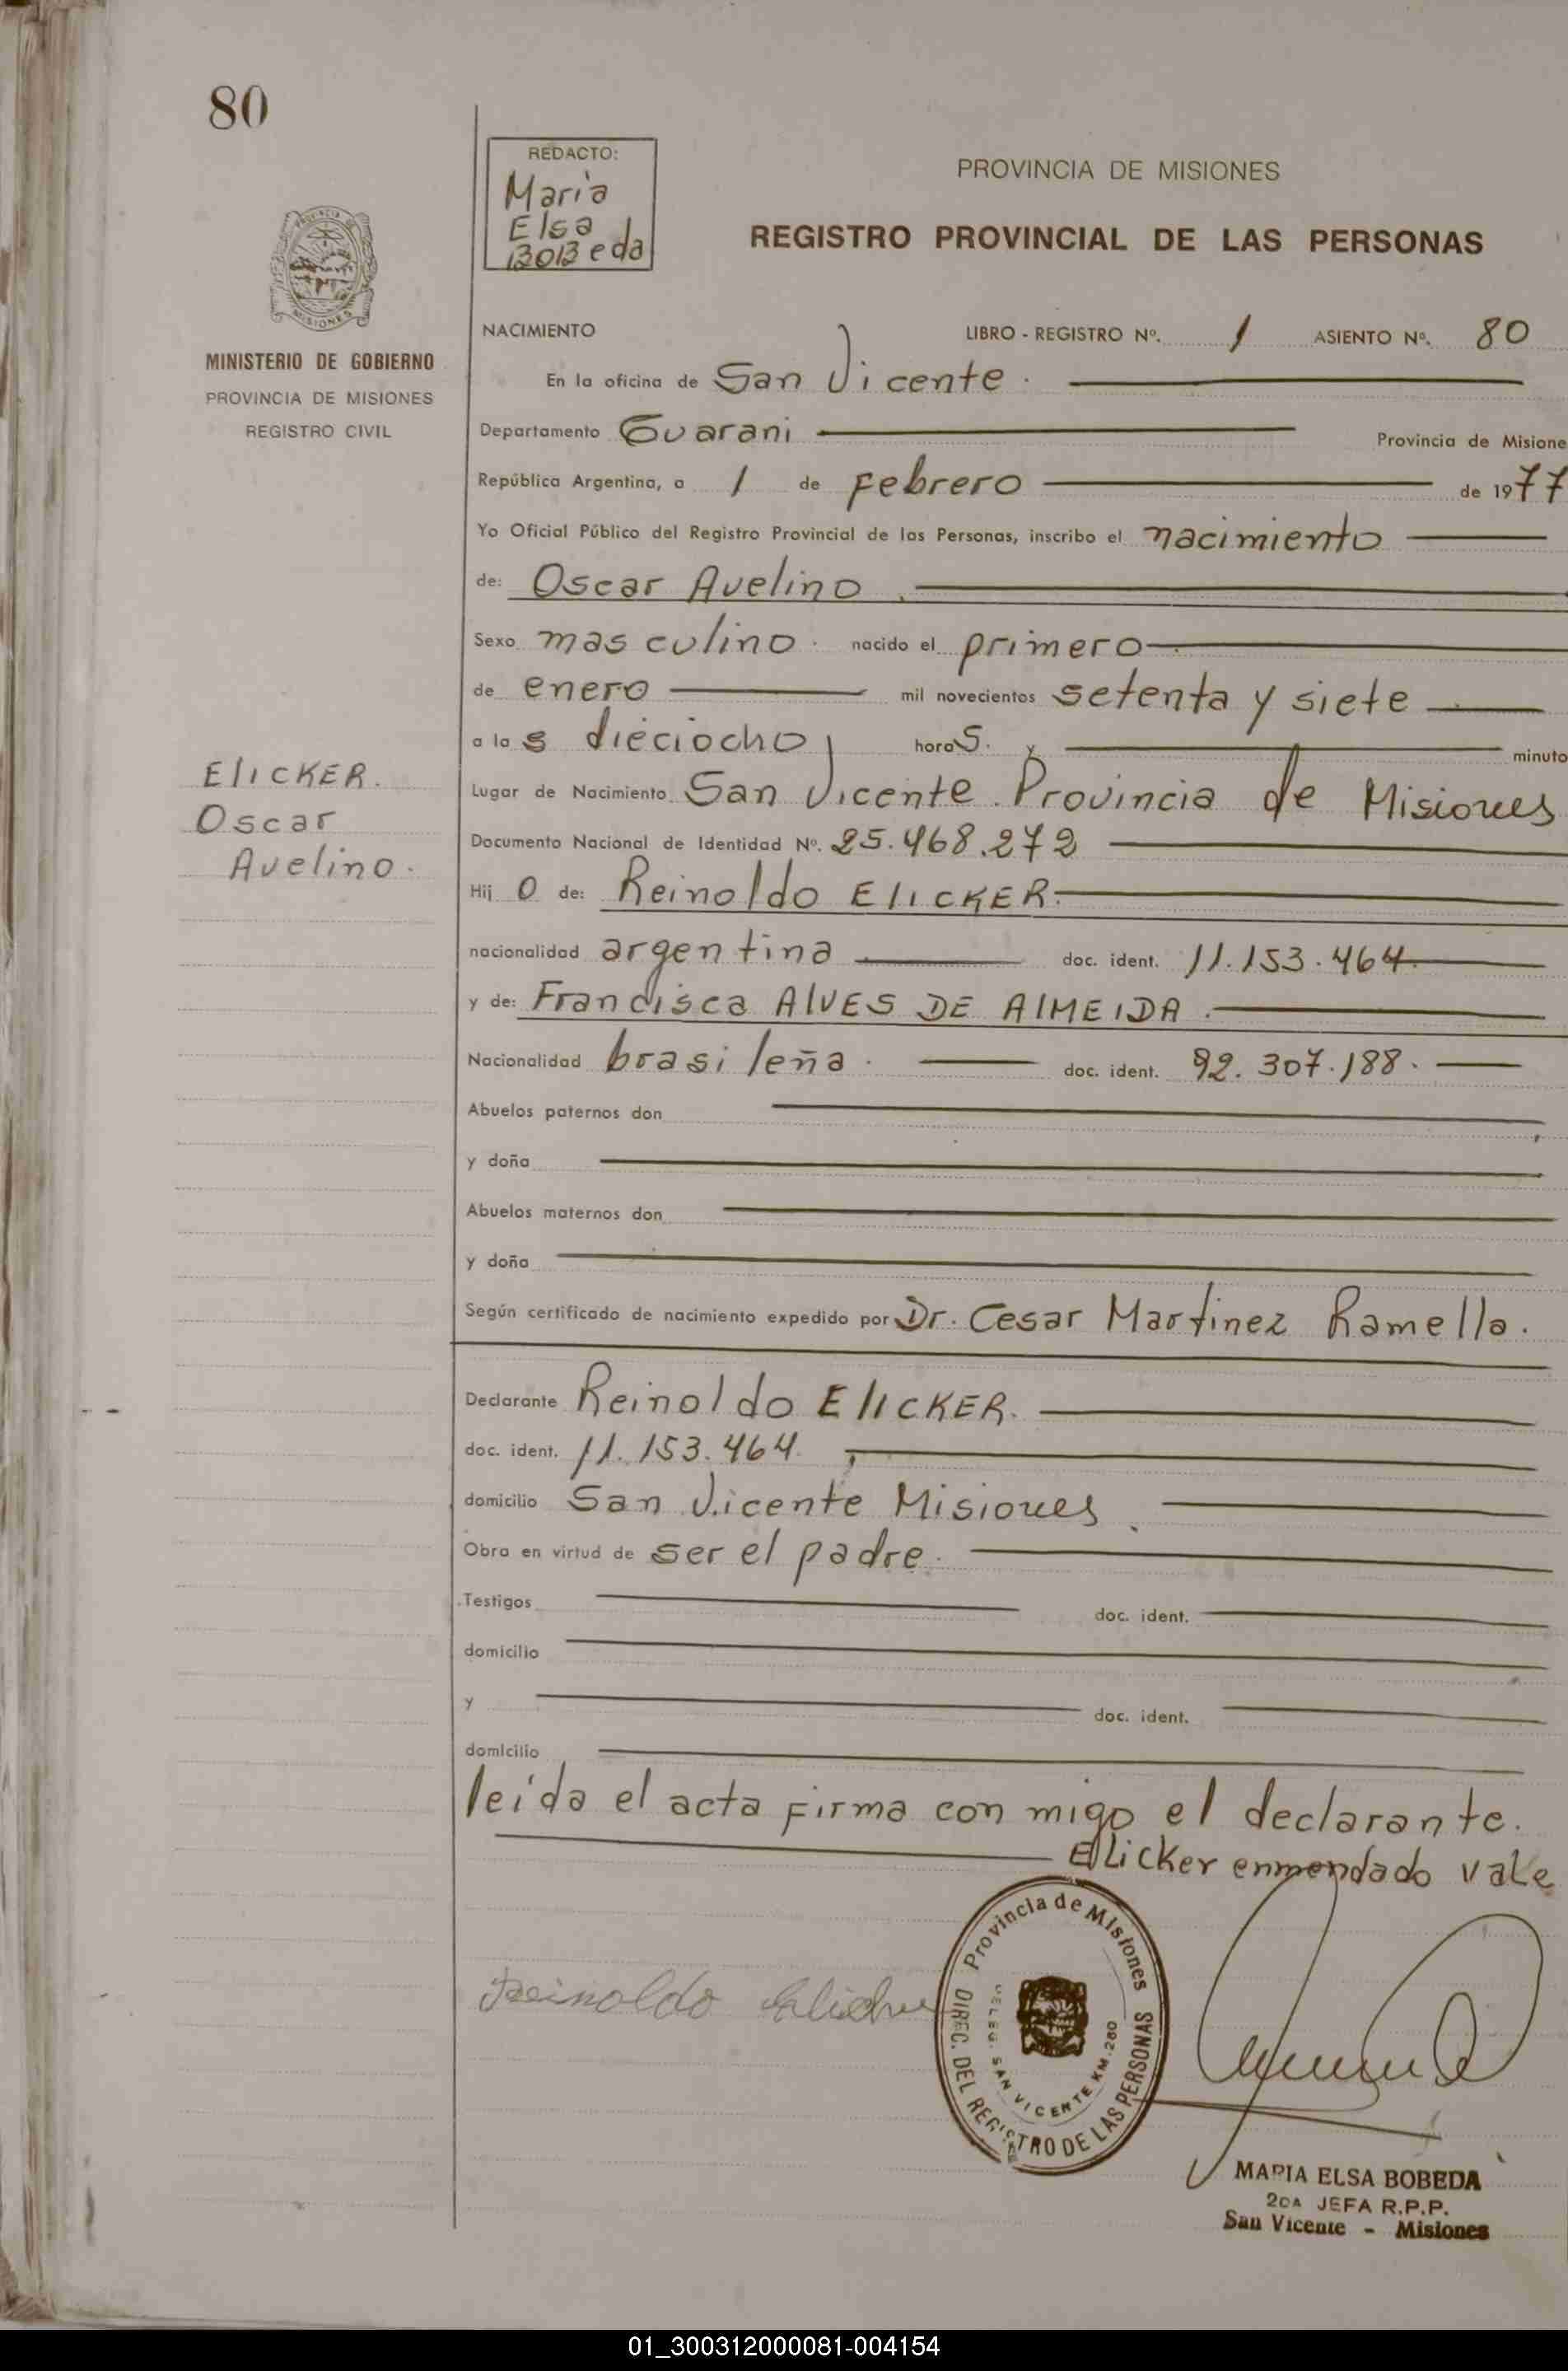 80
PROVINCIA DE
MISIONES
MINISTERIO DE GOBIERNO
PROVINCIA DE MISIONES
REGISTRO CIVIL
ELICKER.
Oscar
Avelino.
REDACTO:
Maria
Elsa
Bobeda
PROVINCIA DE MISIONES
REGISTRO PROVINCIAL DE LAS PERSONAS
NACIMIENTO LIBRO - REGISTRO Nº. 1 ASIENTO Nº. 80
En la oficina de San Vicente.
Departamento Guarani Provincia de Misione
República Argentina, a 1 de Febrero de 1977
Yo Oficial Público del Registro Provincial de las Personas, inscribo el nacimiento
de: Oscar Avelino.
Sexo masculino. nacido el primero
de enero mil novecientos setenta y siete
a las dieciocho horas. y minuto
Lugar de Nacimiento San Vicente. Provincia de Misiones
Documento Nacional de Identidad Nº. 25.468.272
Hij o de: Reinoldo ElICKER.
nacionalidad argentina doc. ident. 11.153.464.
y de: Francisca AlVES DE AlMEIDA.
Nacionalidad brasileña. doc. ident. 92.307.188.
Abuelos paternos don
y doña
Abuelos maternos don
y doña
Según certificado de nacimiento expedido por Dr. Cesar Martinez Ramella.
Declarante Reinoldo ElICKER.
doc. ident. 11.153.464.
domicilio San Vicente Misiones.
Obra en virtud de ser el padre.
Testigos doc. ident.
domicilio
y doc. ident.
domicilio
leida el acta firma con migo el declarante.
Elicker enmendado vale
Reinoldo Elicker
Provincia de Misiones
DIREC. DEL REGISTRO DE LAS PERSONAS
DELEG. SAN VICENTE KM. 280
MARIA ELSA BOBEDA
2DA JEFA R.P.P.
San Vicente - Misiones
01_300312000081-004154